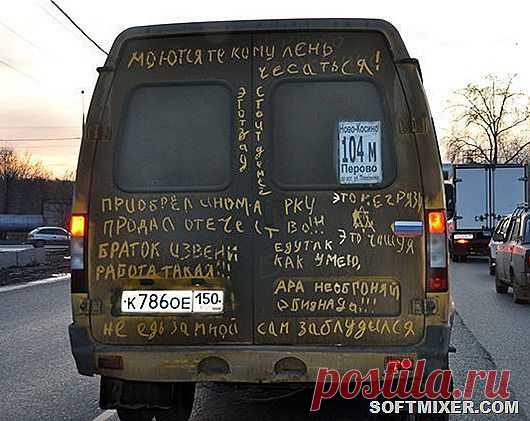 МОЮТСЯ ТЕ КОМУ ЛЕНЬ
ЧЕСАТЬСЯ!
ЭТОТ ЗАД
СТОИТ ДЕНЕГ
Ново-Косино
104 м
Перово
ПРИОБРЁЛ ИНОМАРКУ
ПРОДАЛ ОТЕЧЕСТВО!!!
БРАТОК ИЗВЕНИ
РАБОТА ТАКАЯ!!!
ЭТО НЕ ГРЯЗЬ
ЭТО ЧАЩУЯ
ЕДУ ТАК
КАК УМЕЮ,
АРА НЕ ОБГОНЯЙ
ОБИДНА ДА!!!
К786ОЕ 150
НЕ ЕДЬ ЗА МНОЙ САМ ЗАБЛУДИЛСЯ
postila.ru
SOFTMIXER.COM